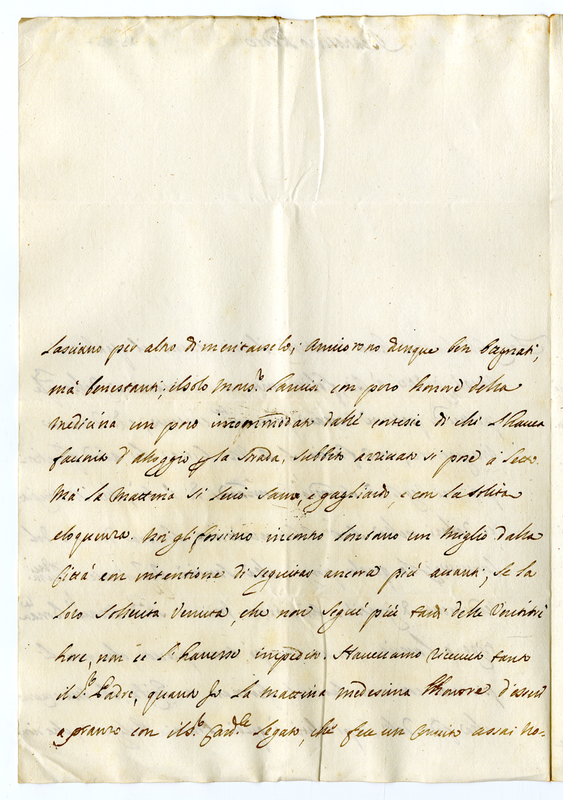 lasciano per altro di meritarselo; Arrivorono dunque ben bagnati,
mà benestanti, il solo Mons.r Lancisi con poco honore della
medicina un poco incommodato dalle cortesie di chi l'haveva
favorito d'alloggio p la strada, subbito arrivato si pose à letto.
Mà la mattina si levò sano, e gagliardo, e con la solita
eloquenza. Noi gli facessimo incontro lontano un miglio dalla
Città con intentione di seguitar ancora più avanti, se la
loro sollecita venuta, che non seguì più tardi delle vent'tré
hore, non ce l'havesse impedito. Havessimo ricevuto tanto
il S.r Padre, quanto Io la mattina medesima l'honore d'esser
a pranzo con il S.r Card.le Legato, che fece un convito assai no-